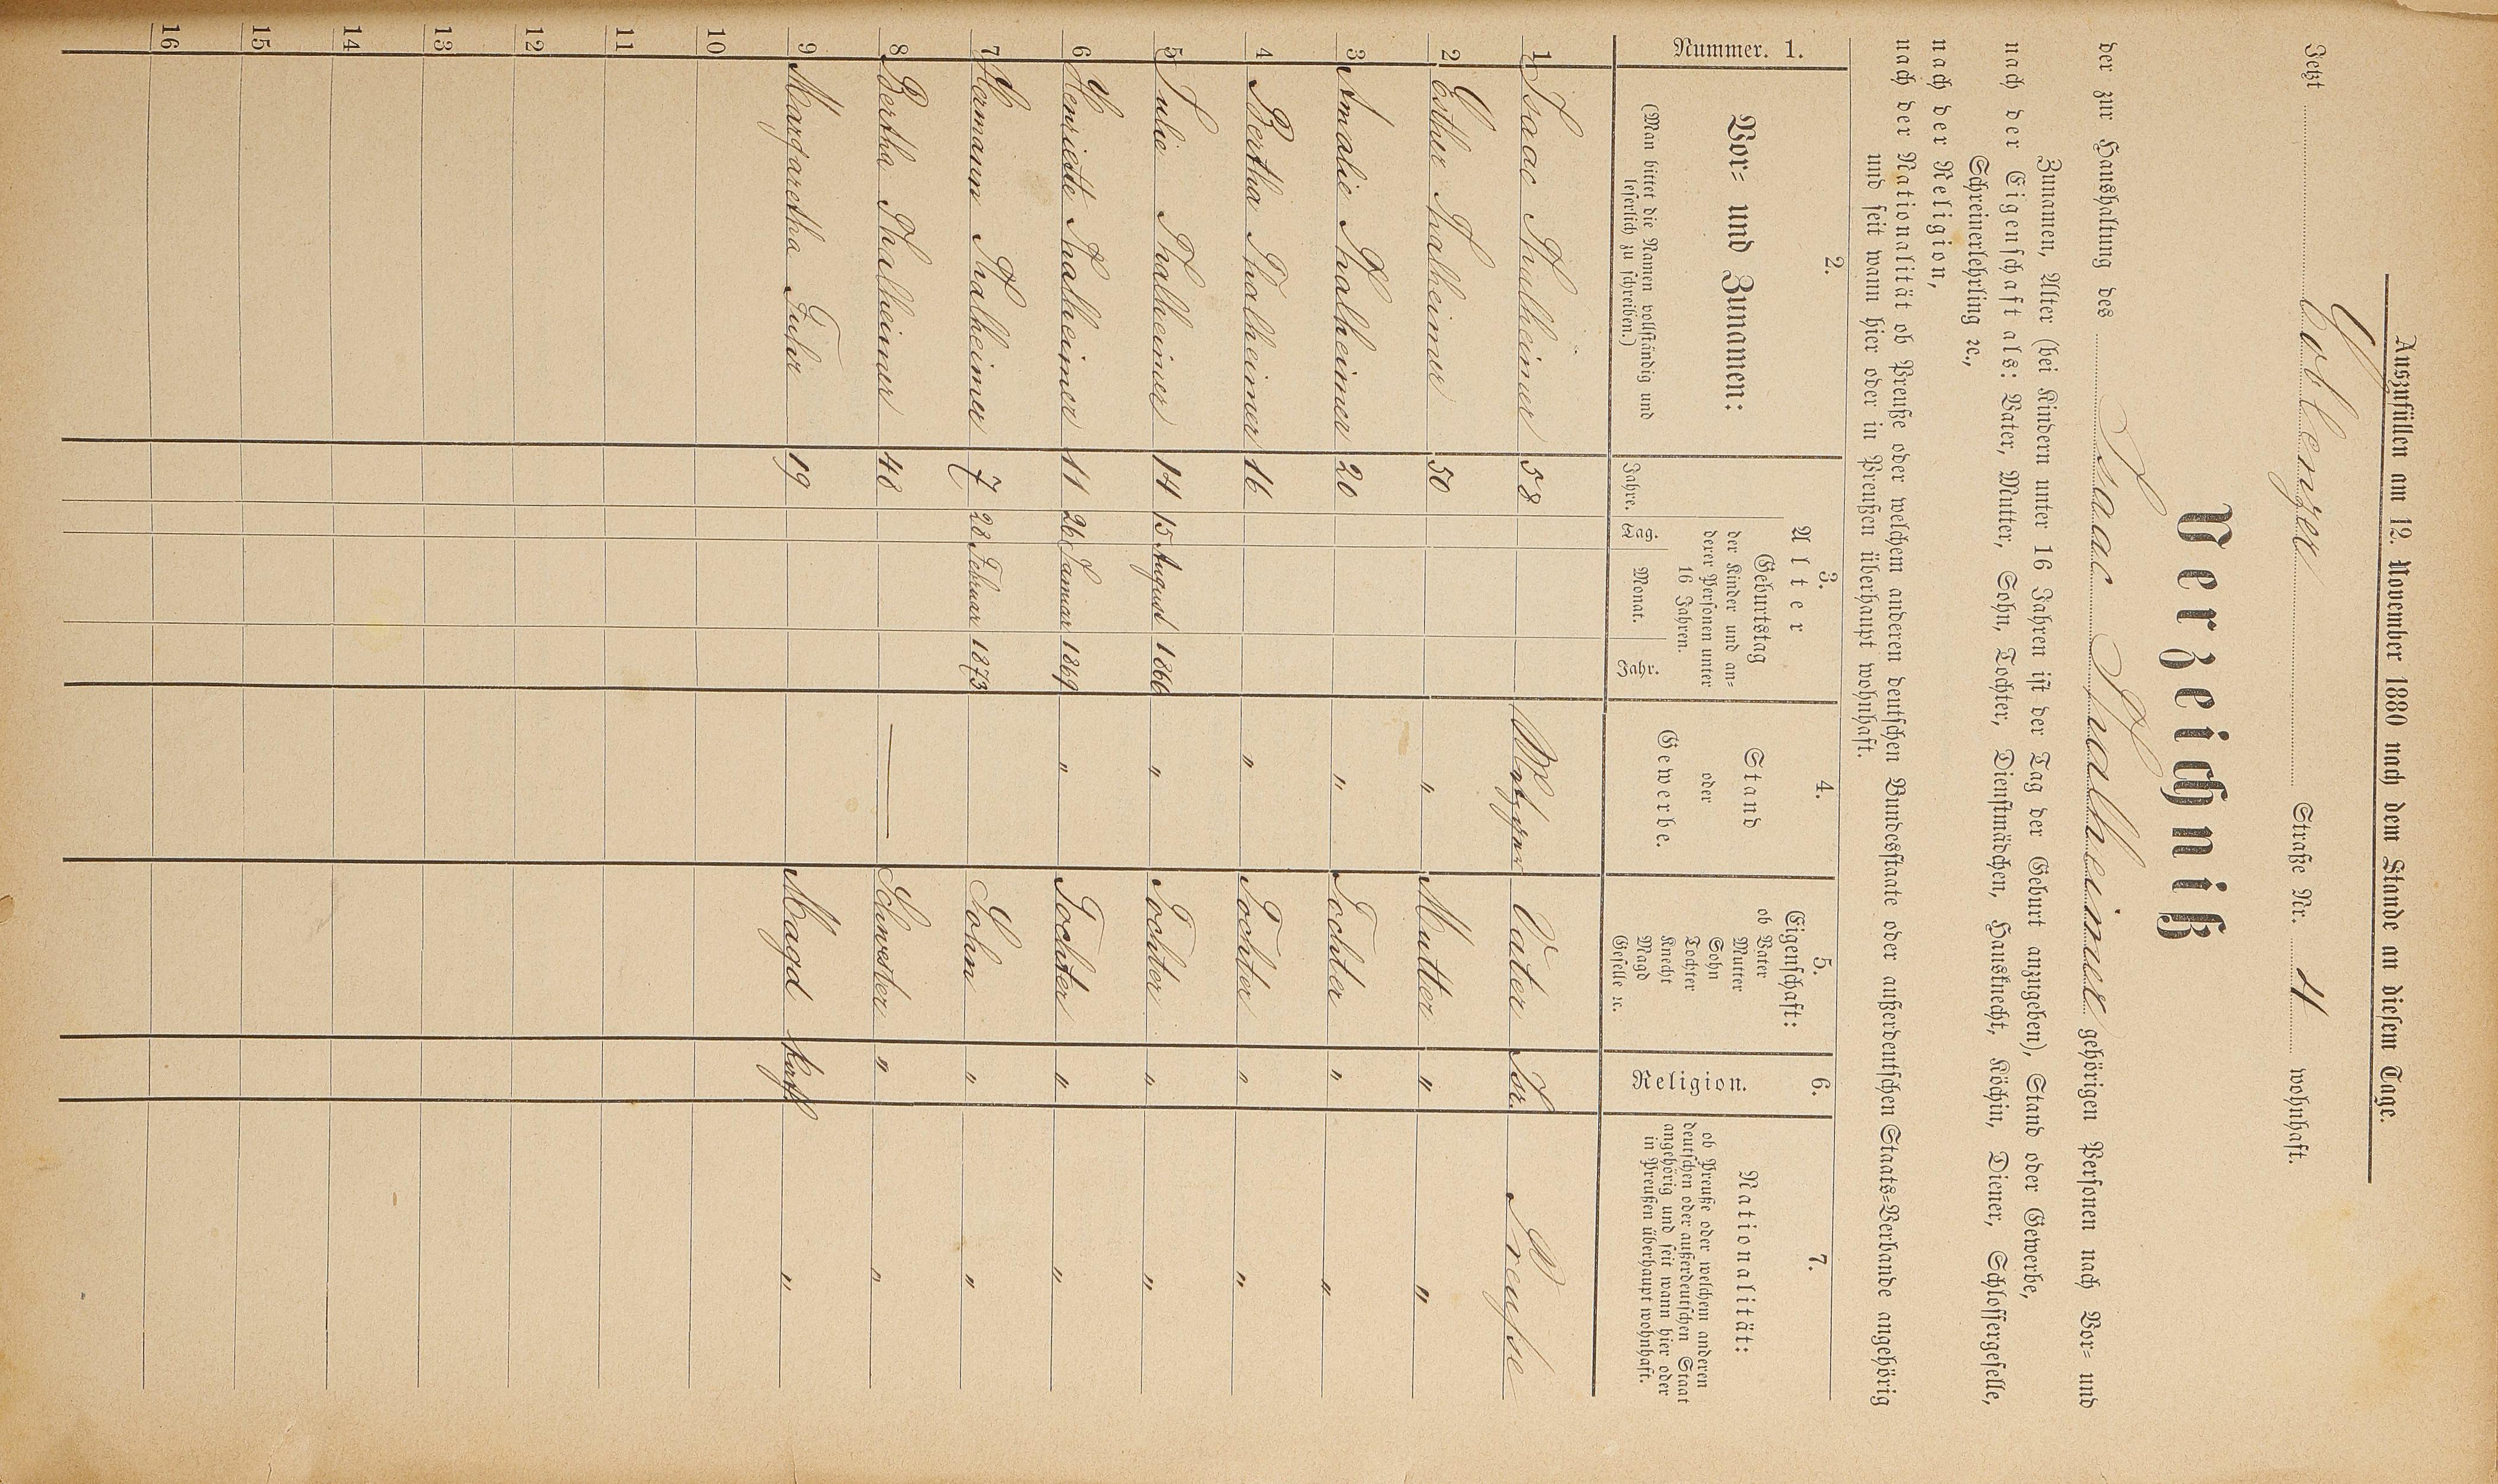 Auszufüllen am 12. November 1880 nach dem Stande an diesem Tage.
Jetzt Coblenzer Straße Nr. 4 wohnhaft.
Verzeichniß
der zur Haushaltung des Isaac Thalheimer gehörigen Personen nach Vor- und
Zunamen, Alter (bei Kindern unter 16 Jahren ist der Tag der Geburt anzugeben), Stand oder Gewerbe,
nach der Eigenschaft als: Vater, Mutter, Sohn, Tochter, Dienstmädchen, Hausknecht, Köchin, Diener, Schlossergeselle,
Schreinerlehrling ꝛc.,
nach der Religion,
nach der Nationalität ob Preuße oder welchem anderen deutschen Bundesstaate oder außerdeutschen Staats-Verbande angehörig
und seit wann hier oder in Preußen überhaupt wohnhaft.
1. Nummer.
2. Vor- und Zunamen:
(Man bittet die Namen vollständig und
leserlich zu schreiben.)
3. Alter
Geburtstag
der Kinder und an-
derer Personen unter
16 Jahren.
Jahre. Tag. Monat. Jahr.
4. Stand
oder
Gewerbe.
5. Eigenschaft:
ob Vater
Mutter
Sohn
Tochter
Knecht
Magd
Geselle ꝛc.
6. Religion.
7. Nationalität:
ob Preuße oder welchem anderen
deutschen oder außerdeutschen Staat
angehörig und seit wann hier oder
in Preußen überhaupt wohnhaft.
1 Isaac Thalheimer 58 Metzger Vater Isr. Preusse
2 Esther Thalheimer 50 " Mutter " "
3 Amalie Thalheimer 20 " Tochter " "
4 Bertha Thalheimer 16 " Tochter " "
5 Julie Thalheimer 14 15 August 1866 " Tochter " "
6 Henriette Thalheimer 11 26 Januar 1869 " Tochter " "
7 Hermann Thalheimer 7 28 Februar 1873 Sohn " "
8 Bertha Thalheimer 48 — Schwester " "
9 Margaretha 19 Magd kath "
10
11
12
13
14
15
16